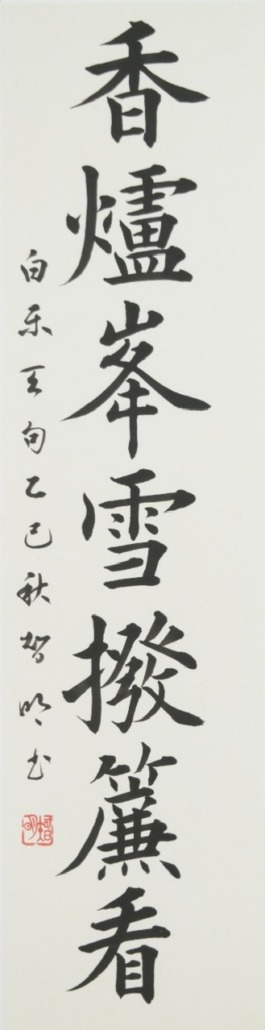 香爐峯雪撥簾看
白樂天句乙巳秋智明书
智明